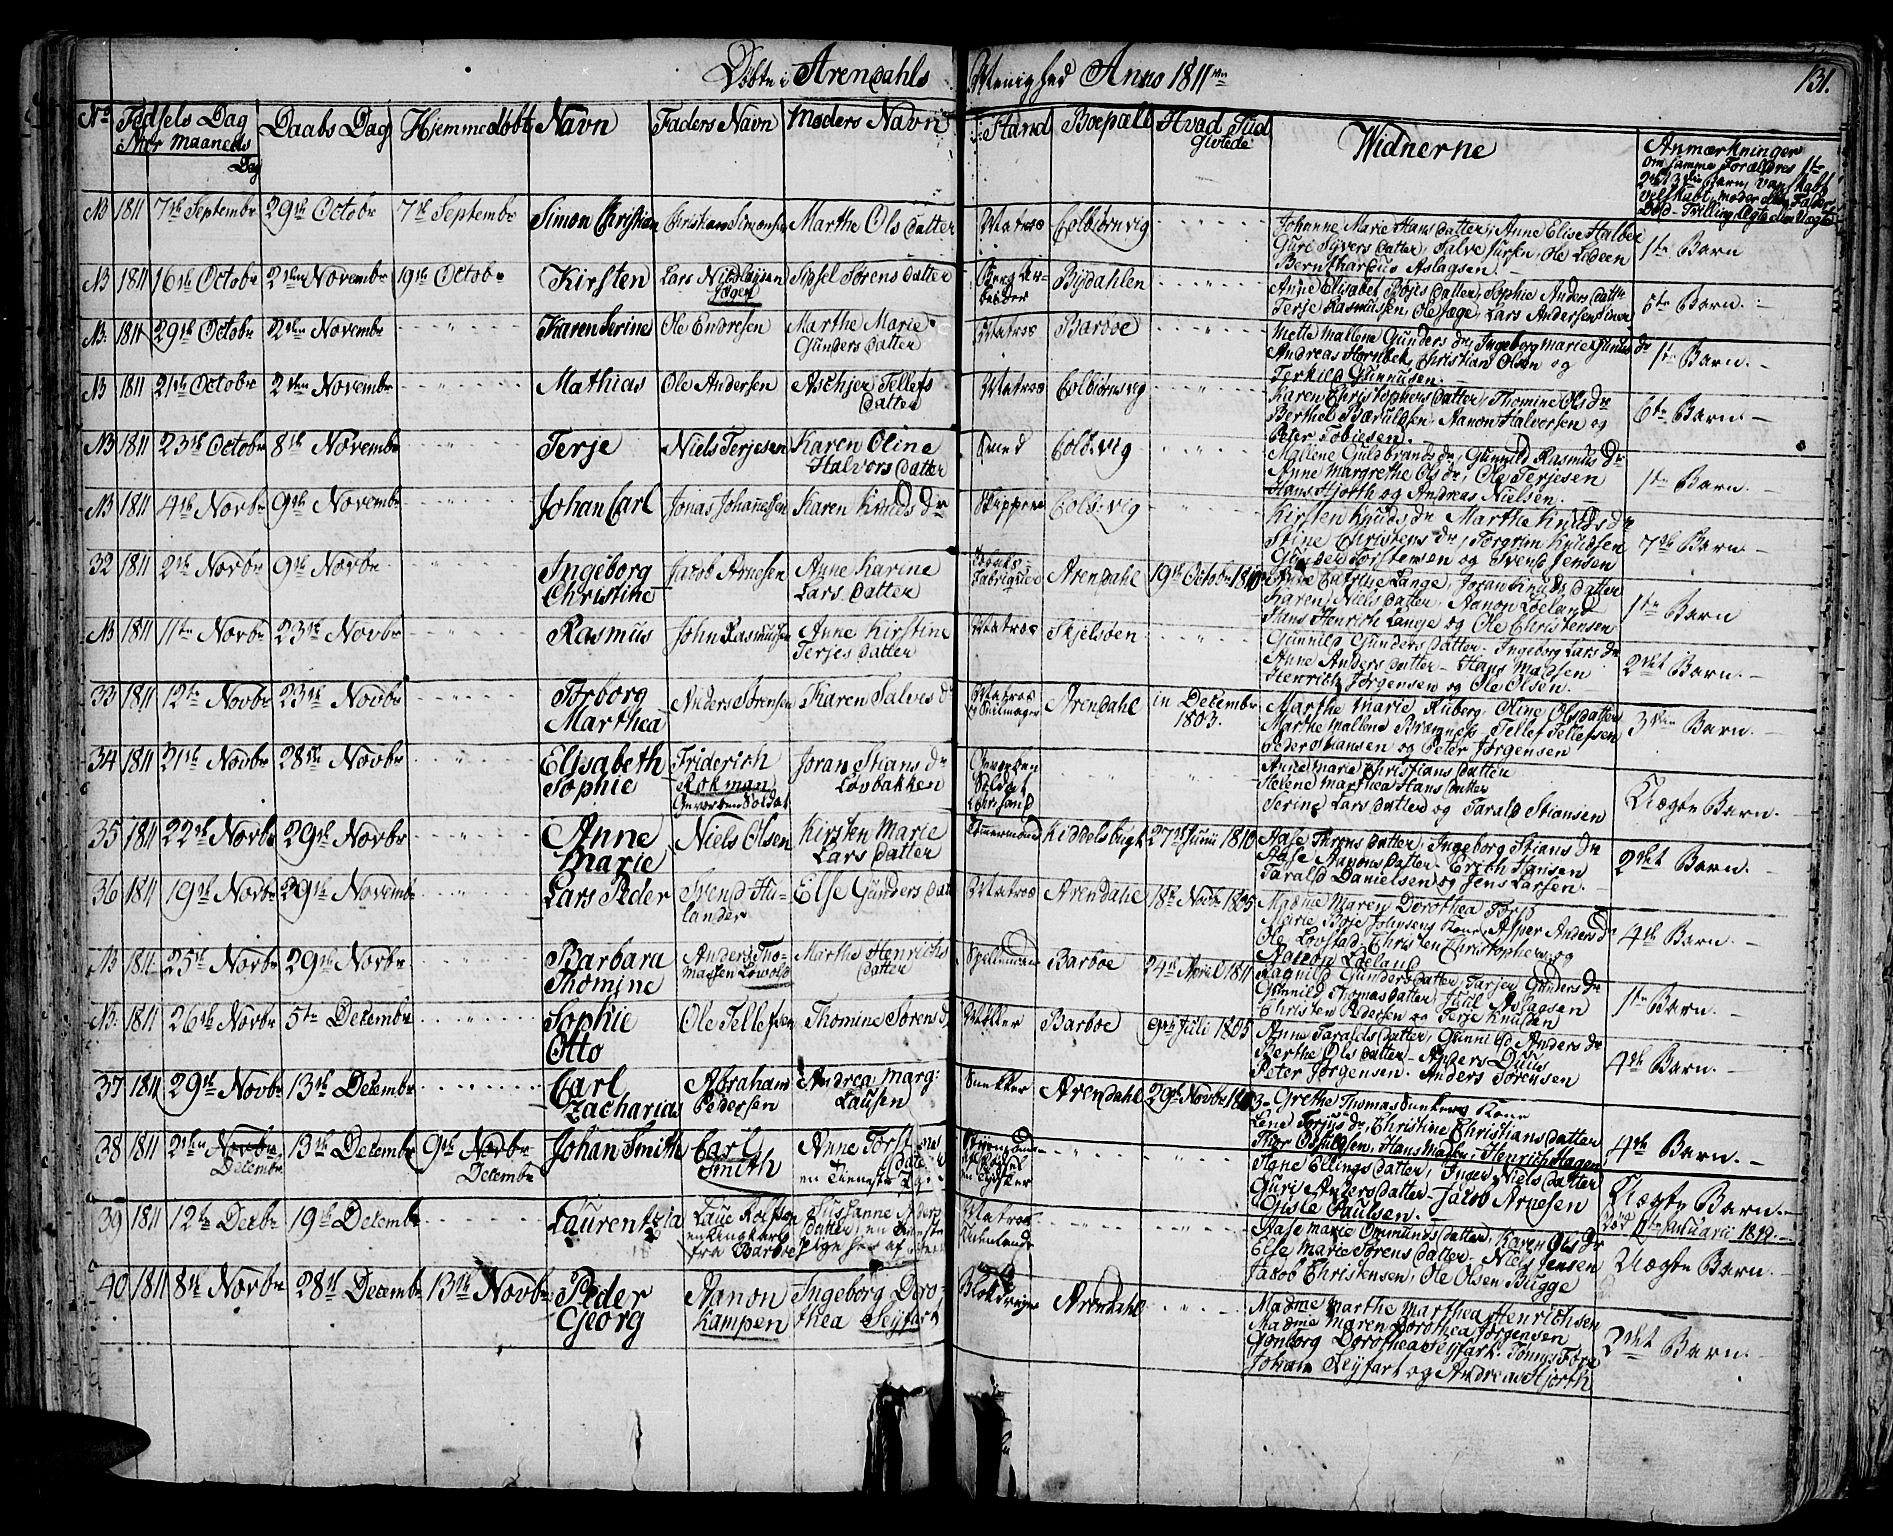 Døbte i Arendahls Menighed Anno 1811
131.
No Fødsels Dag Daabs Dag Hjemmedøbt Navn Faders Navn Moders Navn F: Stand Boepæl Hvad Tiid Widnerne Anmærkninger
Aar Maaneds Dag
Giftede
om samme Forældres 1te
NB 1811 7de Septembr 29de Octobr 7de Septembr Simon Christian Christian Simonsen Marthe Ols datter Matros Colbiørnsvig
Johanne Marie Hans datter, Anne Elise Halbei
Guri Syvers datter, Ole Lideen
Bernthardus Aslagsen.
1te Barn
NB 1811 16de Octobr 2den Novembr 19de Octobr Kirsten Lars Sidsel Sørens datter Bydahlen
Anne Elisabet Bøjes datter, Sophie Anders datter
Terje Rasmussen, Ole Jæge, Lars Andersen
5te Barn
NB 1811 29de Octobr 2den Novembr Karen Serine Ole Endresen Marthe Marie Gunders datter Matros Barboe
Mette Mallene Gunders dr, Ingeborg Marie Gunders dr
Andreas Hornbek, Christian Olsen og
Terkild Gunnusen.
1te Barn
NB 1811 21de Octobr 2den Novembr Mathias Ole Andersen Aschjer Tellefs datter Matros Colbiørnsvig
Karen Christophers datter, Thomine Ols dr
Berthel Bæruldsen, Aanon Halvorsen og
Peter Tobiesen.
6te Barn
NB 1811 23de Octobr 8de Novembr Terje Niels Terjesen Karen Oline Halvors datter Smed Coldevig
Mallene Guldbrands dr, Gunnild Rasmus dr
Anne Margrethe Ols dr, Ole Terjesen
Hans Hjorth og Andreas Nielsen.
1te Barn.
NB 1811 4de Novbr 9de Novembr Johan Carl Jonas Johannesen Karen Knuds dr Skipper Coldevig
Kirsten Knuds dr Marthe Knuds dr
Stine Christens dr, Torgrim Knudsen
Gunder Torstensen og Svend Jensen
7de Barn
32 1811 2de Novbr 9de Novbr Ingeborg Christine Jacob Arnesen Anne Karine Lars datter Tobaks Fabriqueur Arendahl 19de Octobr 1810
Anne Catrine Lange, Joran Knuds datter
Karen Niels datter, Aanon Loeland
Hans Henrich Lange og Ole Christensen
1te Barn
NB 1811 11te Novbr 23de Novbr Rasmus John Rasmussen Anne Kirstine Terjes datter Matros Skjelsøen
Gunnild Gunders datter - Ingeborg Lars dr
Anne Anders datter - Hans Madsen
Henrich Jørgensen og Ole Olsen.
2det Barn
33 1811 12te Novbr 23de Novbr Torborg Marthea Anders Sørensen Karen Salves dr Matros og Seilmager Arendahl in Decembr 1803.
Marthe Marie Auborg, Oline Olsdatter
Marthe Mallene Tellef Tellefsen
Peder Stiansen og Peter Jørgensen
3die Barn.
34 1811 21de Novbr 28de Novbr Elisabeth Sophie Friderich Rokman Gevorben Soldat Joran Stians dr Løvbakken Gevorben Soldat
Anne Marie Christians datter
Helene Marthea Hans datter
Serine Lars datter og Tarald Stiansen
Uægte Barn.
35 1811 22de Novbr 29de Novbr Anne Marie Niels Olsen Kirsten Marie Lars datter Tømmermand Kiddelsbugt 27de Junii 1810
Aase Tyrens datter, Ingeborg Stians dr
Aase Aanons datter - Erich Hansen
Tarald Danielsen og Jens Larsen.
2det Barn.
36 1811 19de Novbr 29de Novembr Lars Peder Svend Hulander Else Gunders dat Matros Arendahl 18de Novbr 1805
Madme Maren Dorothea Torp
Marie Boje Johnsens Kone, Asper Anders dr
Ole Lovstad, Christen Christophersen og
Aanon Loeland
4de Barn.
NB 1811 25de Novbr 29de Novbr Barbara Thomine Anders Thomassen Lowold Marthe Henrichs datter Spillemand Barboe 24de April 1811
Ragnild Gunders datter, Tarjer Gunders dr
Gunnild Thomas datter, Juul Aslagsen
Christen Pedersen og Terje Knudsen
1te Barn.
NB 1811 26de Novbr 5te Decembr Sophie Otto Ole Tellefsen Thomine Sørens d Barboe 9de Juli 1805
Anne Taralds datter, Gunnild Anders dr
Berthe Ols datter - Anders Dills
Peter Jørgensen. Anders Sørensen
4de Barn.
37 1811 29de Novbr 13de Decembr Carl Zacharias Abraham Pedersen Andrea Marg: Lausen Snekker Arendahl 29de Novbr 1803
Grethe Thomas Snekkers Kone
Lene Torjus dr, Christine Christians datter
Thor Hans Madsen, Henrich Hagen
4de Barn.
38 1811 2den Novbr Decembr 13de Decembr 9de Novbr Decembr Johan Smith Carl Smith Anne Torstens datter en Tieneste Pige
Agne Ellings datter, Inger Niels datter
Guri Anders datter - Jacob Arnesen
Gisle Paulsen.
Uægte Barn.
Død 1te Januarii 1812.
39 1811 12te Decbr 19de Decembr Laurentzia Laue Rolfsen en Ungkarl fra Barboe Susanne Anders datter, en Tieneste Pige her af Matros Udenlands
Aase Marie Ommunds datter, Karen Ols dr
Else Marie Sørens datter - Niels Jensen
Jacob Christensen, Ole Olsen Bugge
Uægte Barn.
40 1811 8de Novbr 28de Decembr 13de Novbr Peder Georg Aanon Kampen Ingeborg Dorothea Seyfart Blokdreyer Arendahl
Madme Marthe Marthea Henrichsen
Madme Maren Dorothea Jørgensen
Gonborg Dorothea Seyfart. Tønnes Fore
Johan Seyfart og Andreas Hjorth
2det Barn.